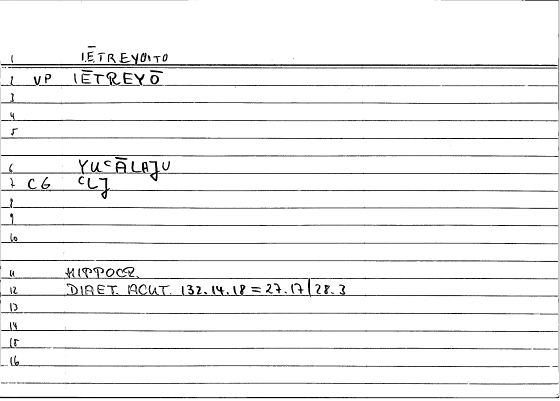 1 IĒTREYOITO
2 VP IĒTREYŌ
3
4
5
6 YUᶜĀLAJU
7 CG ᶜLJ
8
9
10
11 HIPPOCR.
12 DIAET. ACUT. 132.14.18 = 27.17|28.3
13
14
15
16